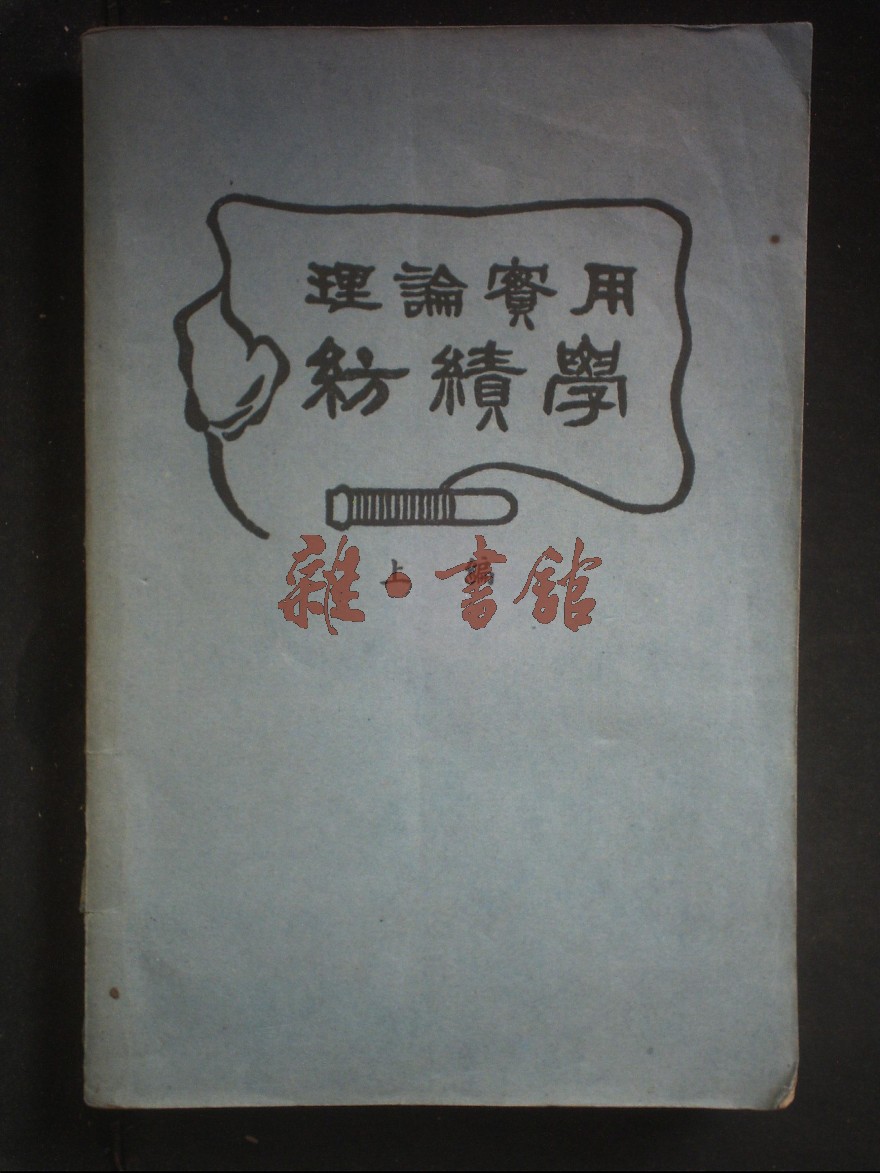 理論實用
紡績學
上編
雜·書館